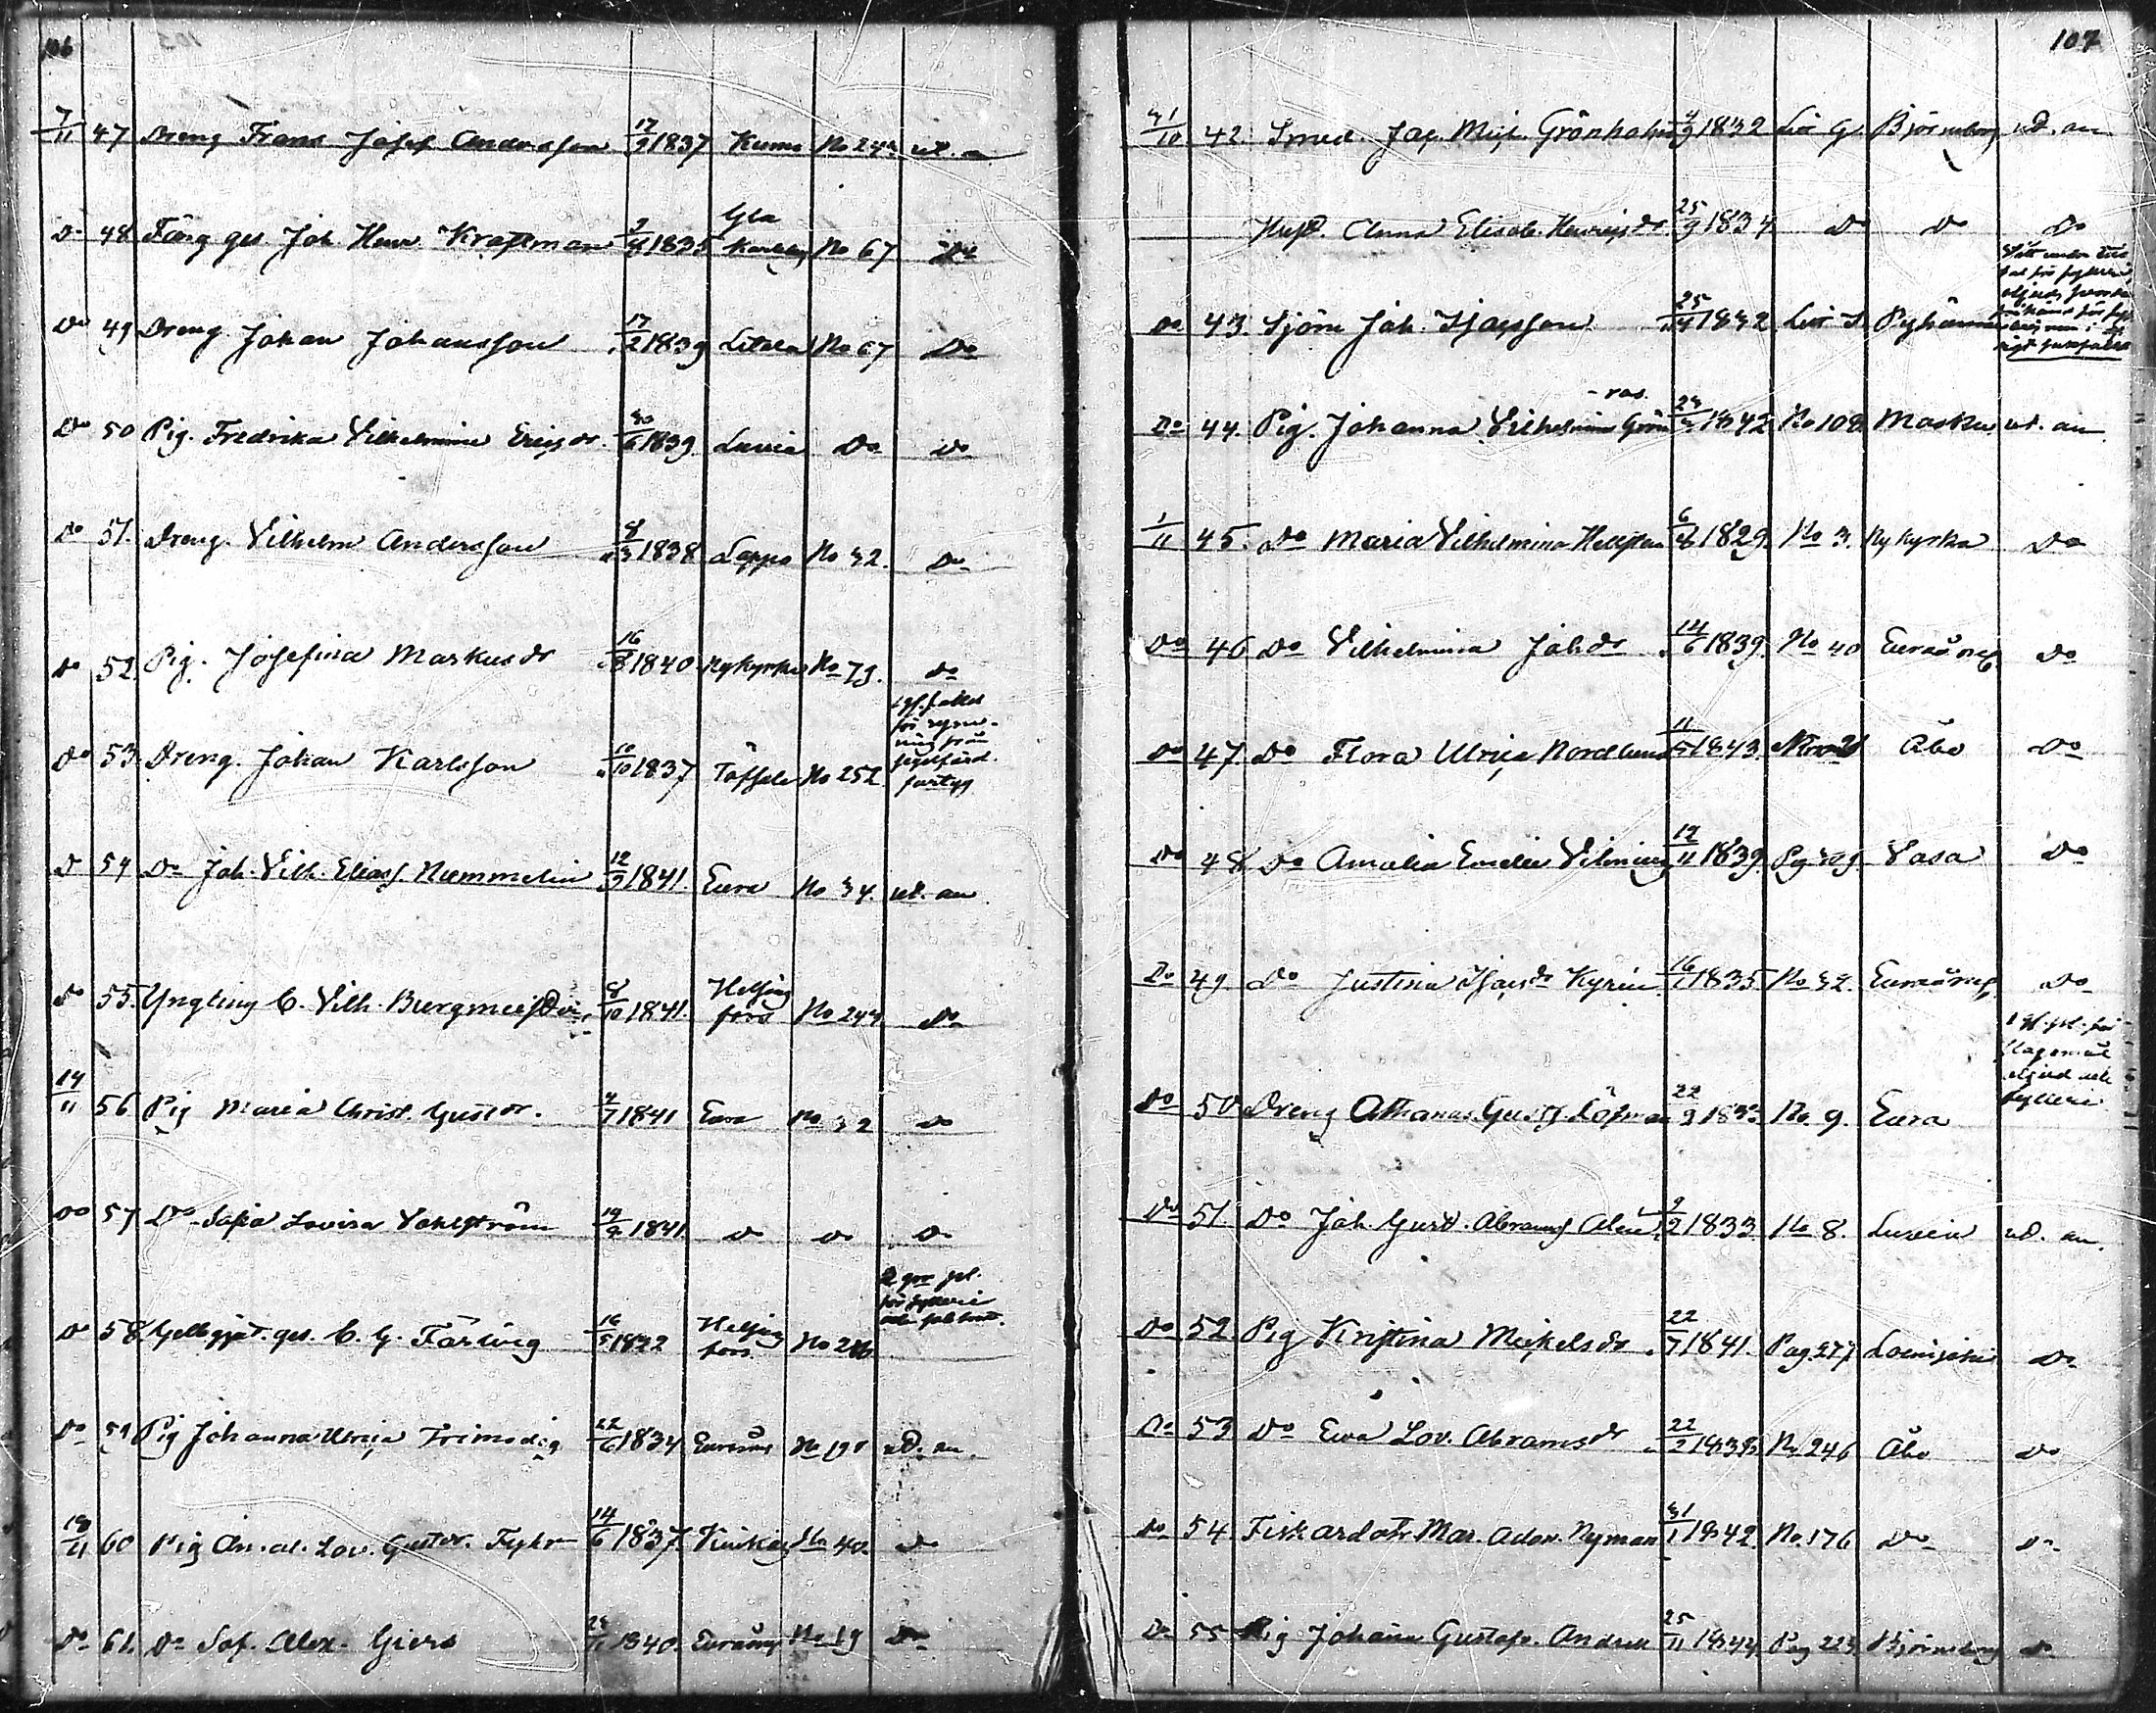 106
7/11 47 Dreng Frans Josef Andersson 17/9 1837 Kumo No 242 ut. a
Do 48 Färg ges. Joh. Henr. Kraftman 2/8 1835 Gla Karleby No 67 Do
Do 49 Dreng Johan Johansson 17/2 1839 Letala No 67 Do
Do 50 Pig. Fredrika Vilhelmina Ericsdr. 30/6 1839 Luvia Do Do
Do 51. Dreng. Vilhelm Andersson 8/3 1838 Lappo No 32. Do
Do 52. Pig. Josefina Markusdr 16/8 1840 Nykyrka No 73. Do
Do 53. Dreng. Johan Karlsson 10/10 1837 Töfsala No 252. 1 gg. saked för rymning från segelfärd. fartyg
Do 54 Do Joh. Vilh. Eliass. Nummelin 12/9 1841. Eura No 34. ut. an
Do 55. Yngling C. Vilh. Burgmeister 8/10 1841. Helsingfors No 244 Do
14/11 56 Pig Maria Christ. Gustdr. 4/7 1841 Eura No 32 Do
Do 57 Do Sofia Lovisa Vahlström 19/9 1841. Do Do Do
Do 58 Gelbgjut. ges. C. G. Färling 16/5 1822 Helsingfors No 216 2 gr pl. för fylleri
Do 59 Pig Johanna Ulrica Trimodig 22/6 1834 Euraåm No 198 ut. an.
18/11 60 Pig Lov. Gustdr. Fyhr 14/6 1837. Kiukais No 40. Do
Do 61. Do Sof. Alex. Giers 1840. Euraåm No 19 Do
107
31/10 42. Smed. Jac. Mich. Grönholm 4/9 1832 Lit G. Björneborg ut. an
Hust. Anna Elisab. Henricsdr. 25/9 1834 Do Do Do
Do 43. Sjöm Joh. Isacsson 25/4 1832 Lit S. Pyhäranta
Do 44. Pig. Johanna Vilhelmina Grönroos. 1842 No 108. Masku ut. an
1/11 45. Do Maria Vilhelmina Hellsten 6/8 1829. No 3. Nykyrka Do
Do 46 Do Vilhelmina Johdr 14/6 1839. No 40 Euraåm Do
Do 47 Do Flora Ulrica Nordlund 11/5 1843. Åbo Do
Do 48 Do Amalia Emelie Vilning 12/11 1839. Pg 309. Vasa Do
Do 49 Do Justina Isacsdr Kyrén 16/1 1835 No 32. Euraåm Do
Do 50 Dreng Athanas. Gust. Löfman 22/9 No. 9. Eura 1 g. pl. för slagsmål fylleri
Do 51. Do Joh. Gust. Abrams. Alén 9/2 1833. No 8. Luvia ut. an.
Do 52 Pig Kristina Mickelsdr 22/7 1841. Pag. 277 Loimijoki Do
Do 53 Do Ewa Lov. Abramsdr 22/2 1838. No 246 Åbo Do
Do 54 Fiskardotr. Mar. Adov. Nyman 31/1 1842. No. 176 Do Do
Do 55 Pig Johanna Gustafv. 25/11 1844 Pag 223. Björneborg Do